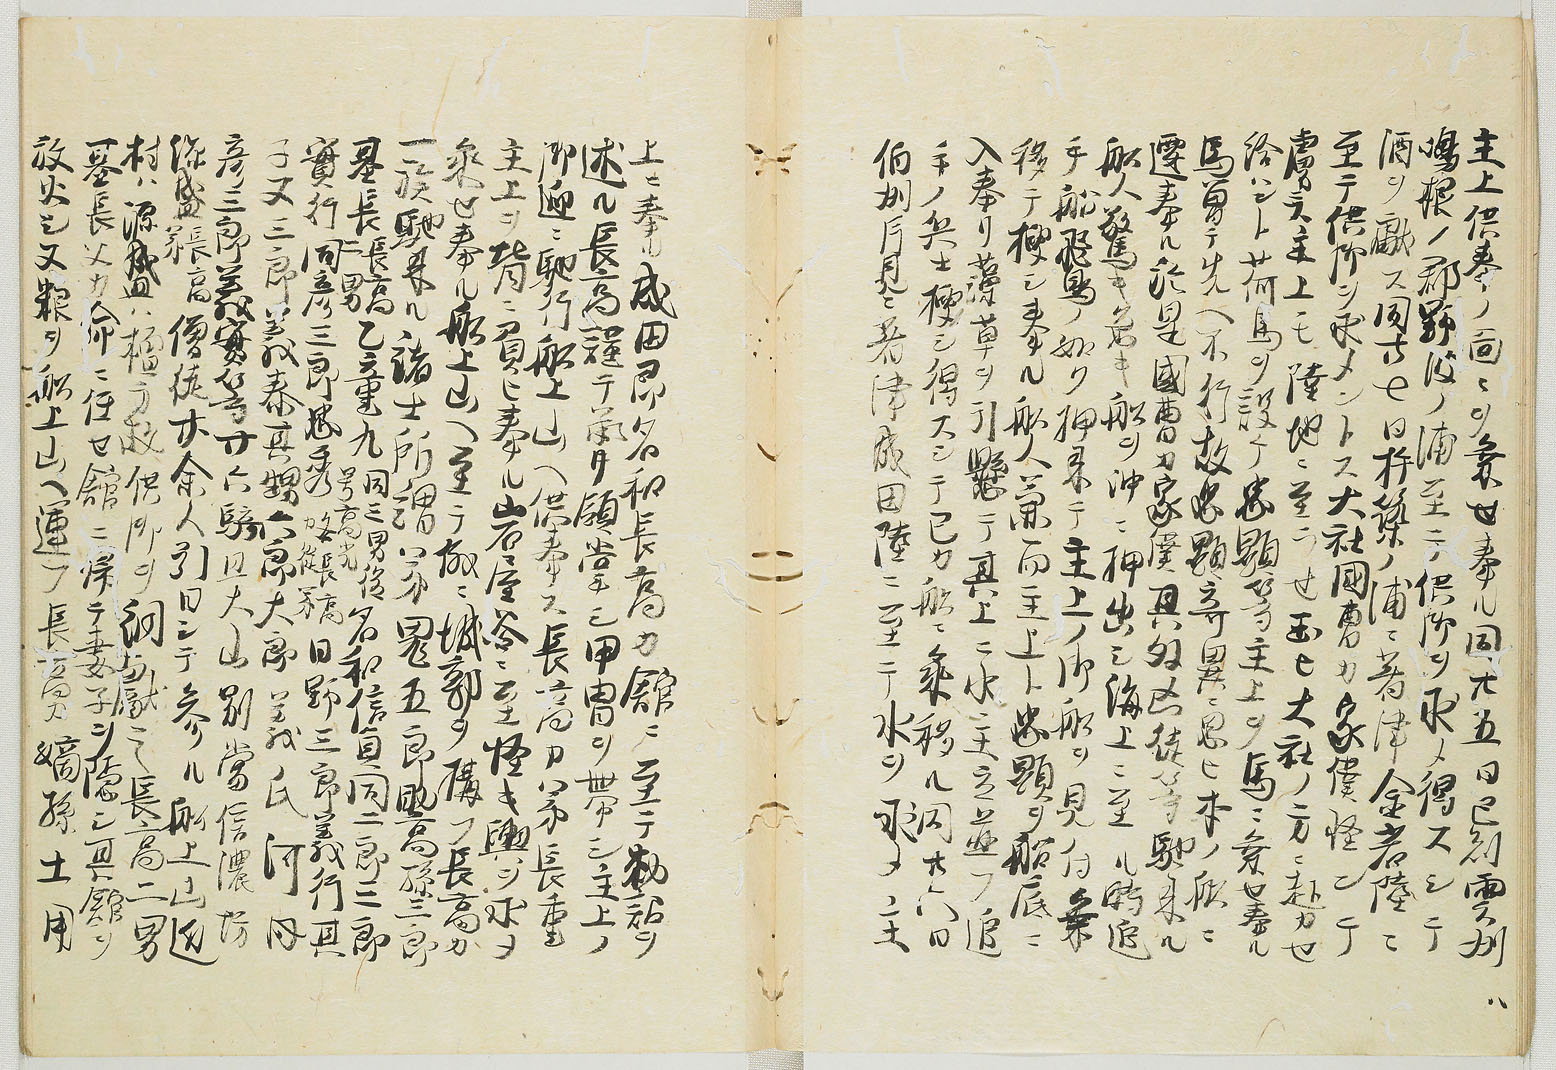 主上供奉ノ間ニヲ乗世奉ル同廿五日巳刻雲州
嶋根ノ郡野波ノ浦至テ供御ヲ求メ得スシテ
酒ヲ献ス同廿七日杵築ノ浦ニ着津金岩陸ニ
至テ供御ヲ求メントス大社國曹カ家僕怪ンテ
虜ラ主上モ陸地ニ至ラセ玉ヒ大社ノ方ニ赴カセ
給ハント荷馬ヲ設ケ忠顕等主上ヲ馬ニ乗セ奉ル
馬曽テ先ヘ不行故忠顕奇異ニ思ヒ本ノ船ニ
還奉ル於是國曹カ家僕具匁凶徒等馳来ル
船人驚キ急キ船ヲ沖ニ押出シ海上ニ至ル時追
手ノ船飛鳥ノ如ク押来テ主上ノ御船ヲ見付乗
移テ捜シ奉ル船人兼而主上ト忠顕ヲ船底ニ
入奉リ藻草ヲ引懸テ其上ニ水主立並フ追
手ノ兵士捜シ得スシテ己カ船ニ乗移ル同廿六日
伯州片見ニ着津成田陸ニ至テ水ヲ求メ主
ハ
上ニ奉ル成田即名和長高カ館ニ至テ勅詔ヲ
述ル長高謹テ蒙月領掌シ甲冑ヲ帯シ主上ノ
御迎ニ馳行船上山ヘ供奉ス長高カ弟長重
主上ヲ背ニ負ヒ奉ル岩屋谷ニ至怪キ輿ヲ求メ
乗セ奉ル船上山ヘ至テ故ニ城郭ヲ構フ長高カ
一族馳来ル諸士所謂弟鬼五郎助高孫三郎
基長長高二男乙童九同三男後名和信貞同二郎三郎
實行同彦三郎忠秀号高光始従長高弟日野三郎義行其
子又三郎義泰其甥六郎太郎義氏河内
彦三郎義實等廿六騎且大山別當信濃坊
源盛長高弟僧徒廿余人引日シテ参ル船上山近
村ハ源盛ハ檀方故供御ヲ調献之長高二男
基長父カ命ニ任セ館ニ帰テ妻子ヲ隠シ其館ヲ
放火シ又粮ヲ船上山ヘ運フ長高男嫡孫土用